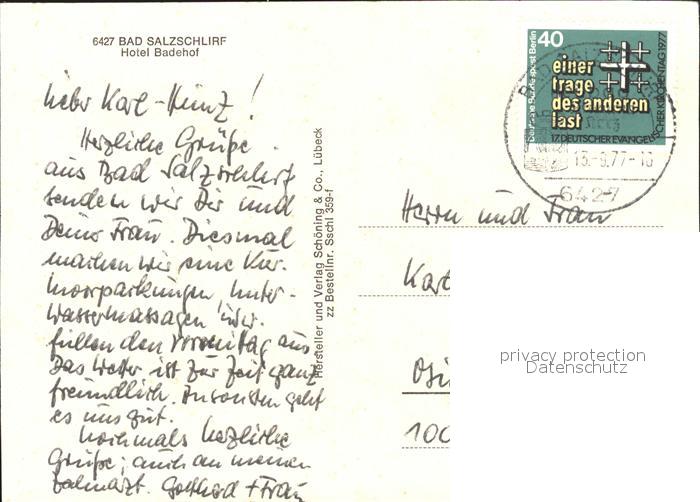 6427 BAD SALZSCHLIRF
Hotel Badehof
lieber Karl-Heinz!
Herzliche Grüße
aus Bad Salzschlirf
senden wir Dir und
Deine Frau. Diesmal
machen wir eine Kur.
Moorpackungen, Unter-
wassermassagen usw.
füllen den Vormittag aus
Das Wetter ist zur Zeit ganz
freundlich. Ansonsten geht
es uns gut.
Nochmals herzliche
Grüße; auch an meinen
Zahnarzt. Gotthard + Frau
Hersteller und Verlag Schöning & Co., Lübeck
zz Bestellnr. Sschl 359-f
Deutsche Bundespost Berlin
40
einer
trage
des anderen
last
17. DEUTSCHER EVANGELISCHER KIRCHENTAG 1977
13.-9.77-16
6427
Herrn und Frau
Karl
100
privacy protection
Datenschutz